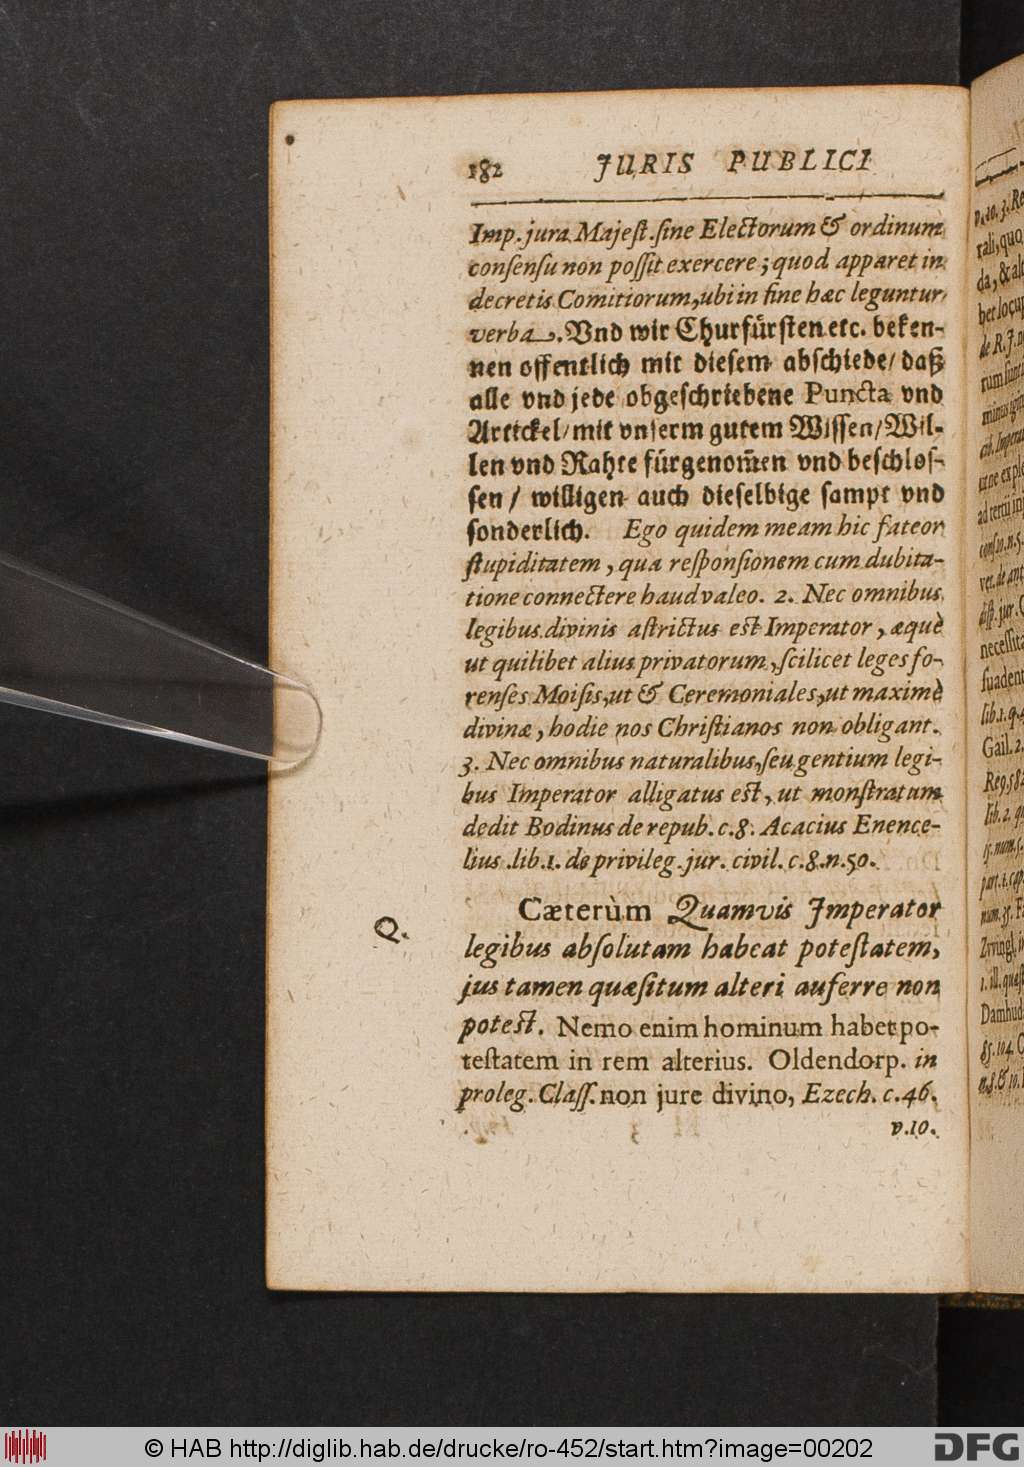 182 JURIS PUBLICI
Imp. jura Majest. sine Electorum & ordinum
consensu non possit exercere; quod apparet in
decretis Comitiorum, ubi in fine hæc leguntur
verba. Vnd wir Churfürsten etc. beken-
nen offentlich mit diesem abschiede/ daß
alle vnd jede obgeschriebene Puncta vnd
Artickel/ mit vnserm gutem Wissen/ Wil-
len vnd Rahte fürgenom̃en vnd beschlos-
sen / willigen auch dieselbige sampt vnd
sonderlich. Ego quidem meam hic fateor
stupiditatem, qua responsionem cum dubita-
tione connectere haud valeo. 2. Nec omnibus
legibus divinis astrictus est Imperator, æquè
ut quilibet alius privatorum, scilicet leges fo-
renses Moisis, ut & Ceremoniales, ut maximè
divinæ, hodie nos Christianos non obligant.
3. Nec omnibus naturalibus, seu gentium legi-
bus Imperator alligatus est, ut monstratum
dedit Bodinus de repub. c. 8. Acacius Enence-
lius. lib. 1. de privileg. jur. civil. c. 8. n. 50.
Q. Cæterùm Quamvis Imperator
legibus absolutam habeat potestatem,
jus tamen quæsitum alteri auferre non
potest. Nemo enim hominum habet po-
testatem in rem alterius. Oldendorp. in
proleg. Class. non jure divino, Ezech. c. 46.
v. 10.
© HAB http://diglib.hab.de/drucke/ro-452/start.htm?image=00202
DFG